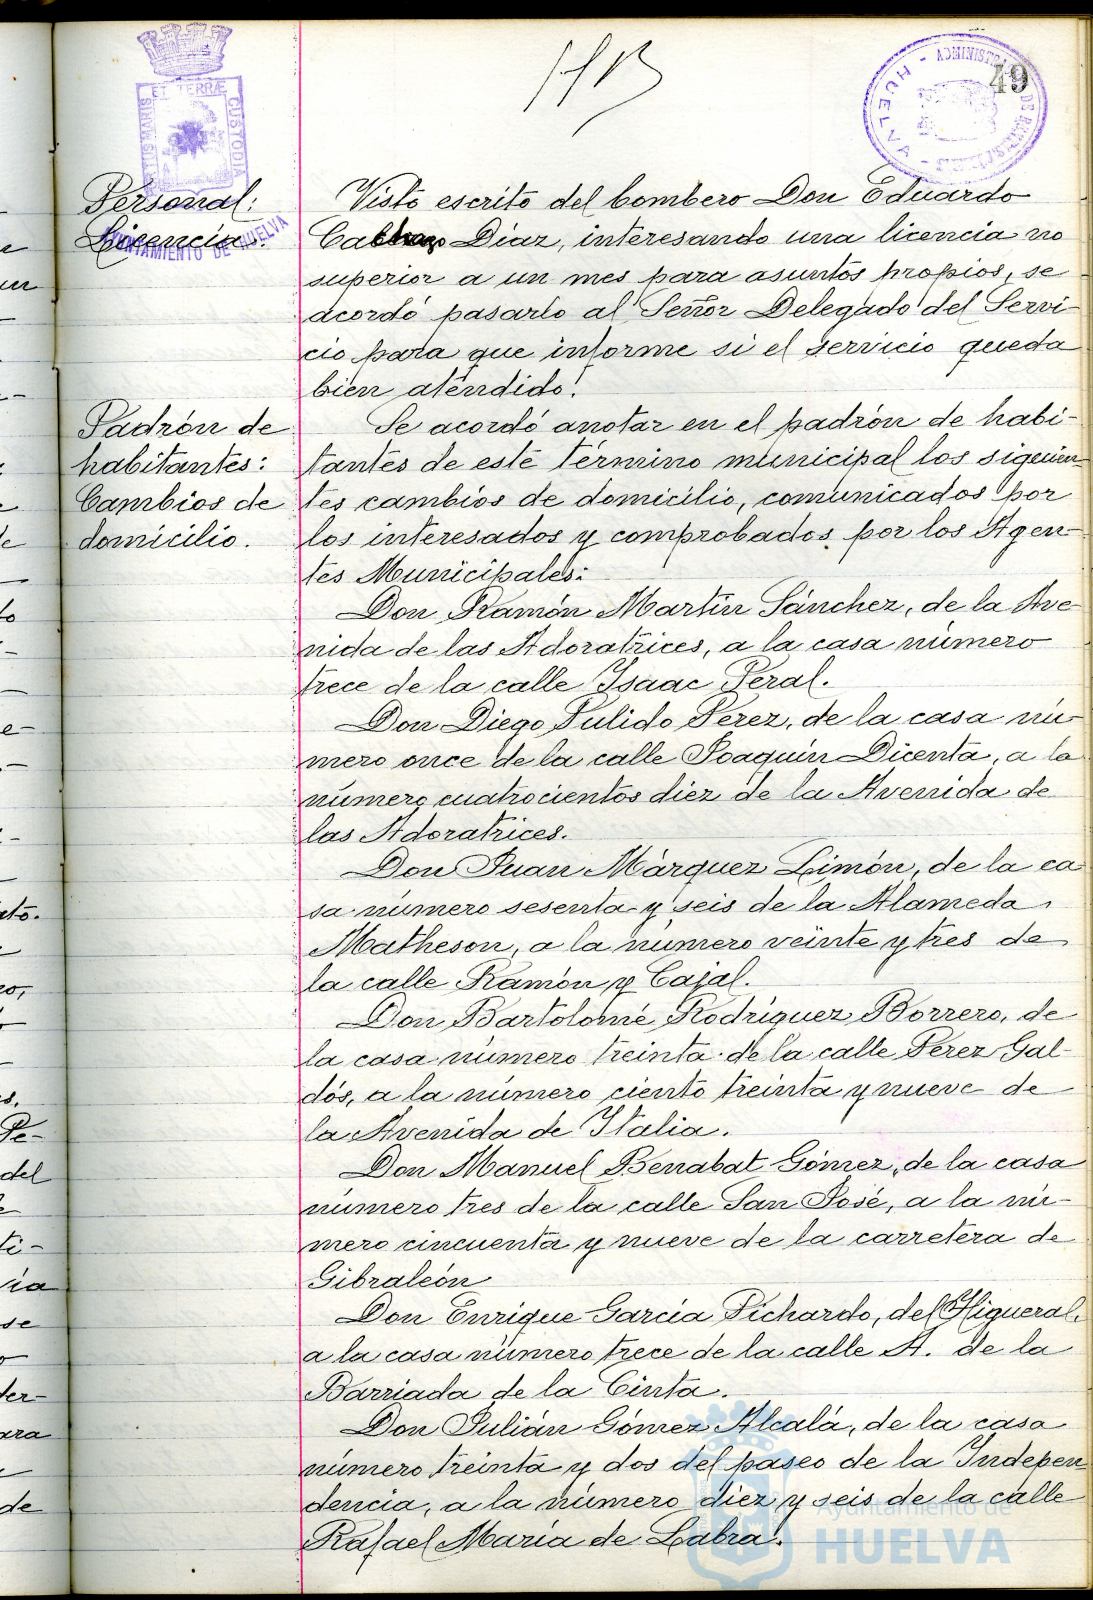 49
ET TERRÆ
CUSTODIA
AYUNTAMIENTO DE HUELVA
HUELVA
Personal:
Licencia.
Visto escrito del bombero Don Eduardo
Díaz, interesando una licencia no
superior a un mes para asuntos propios, se
acordó pasarlo al Señor Delegado del Servi-
cio para que informe si el servicio queda
bien atendido.
Padrón de
habitantes:
Cambios de
domicilio.
Se acordó anotar en el padrón de habi-
tantes de este término municipal los siguien
tes cambios de domicilio, comunicados por
los interesados y comprobados por los Agen-
tes Municipales:
Don Ramón Martín Sánchez, de la Ave
nida de las Adoratrices, a la casa número
trece de la calle Isaac Peral.
Don Diego Pulido Pérez, de la casa nú-
mero once de la calle Joaquín Dicenta, a la
número cuatrocientos diez de la Avenida de
las Adoratrices.
Don Juan Márquez Limón, de la ca
sa número sesenta y seis de la Alameda
Matheson, a la número veinte y tres de
la calle Ramón y Cajal.
Don Bartolomé Rodríguez Borrero, de
la casa número treinta de la calle Pérez Gal-
dós, a la número ciento treinta y nueve de
la Avenida de Italia.
Don Manuel Benabat Gómez, de la casa
número tres de la calle San José, a la nú-
mero cincuenta y nueve de la carretera de
Gibraleón
Don Enrique García Pichardo, del Higueral,
a la casa número trece de la calle A. de la
Barriada de la Cinta.
Don Julián Gómez Alcalá, de la casa
número treinta y dos del paseo de la Indepen
dencia, a la número diez y seis de la calle
Rafael María de Labra.
Ayuntamiento de
HUELVA